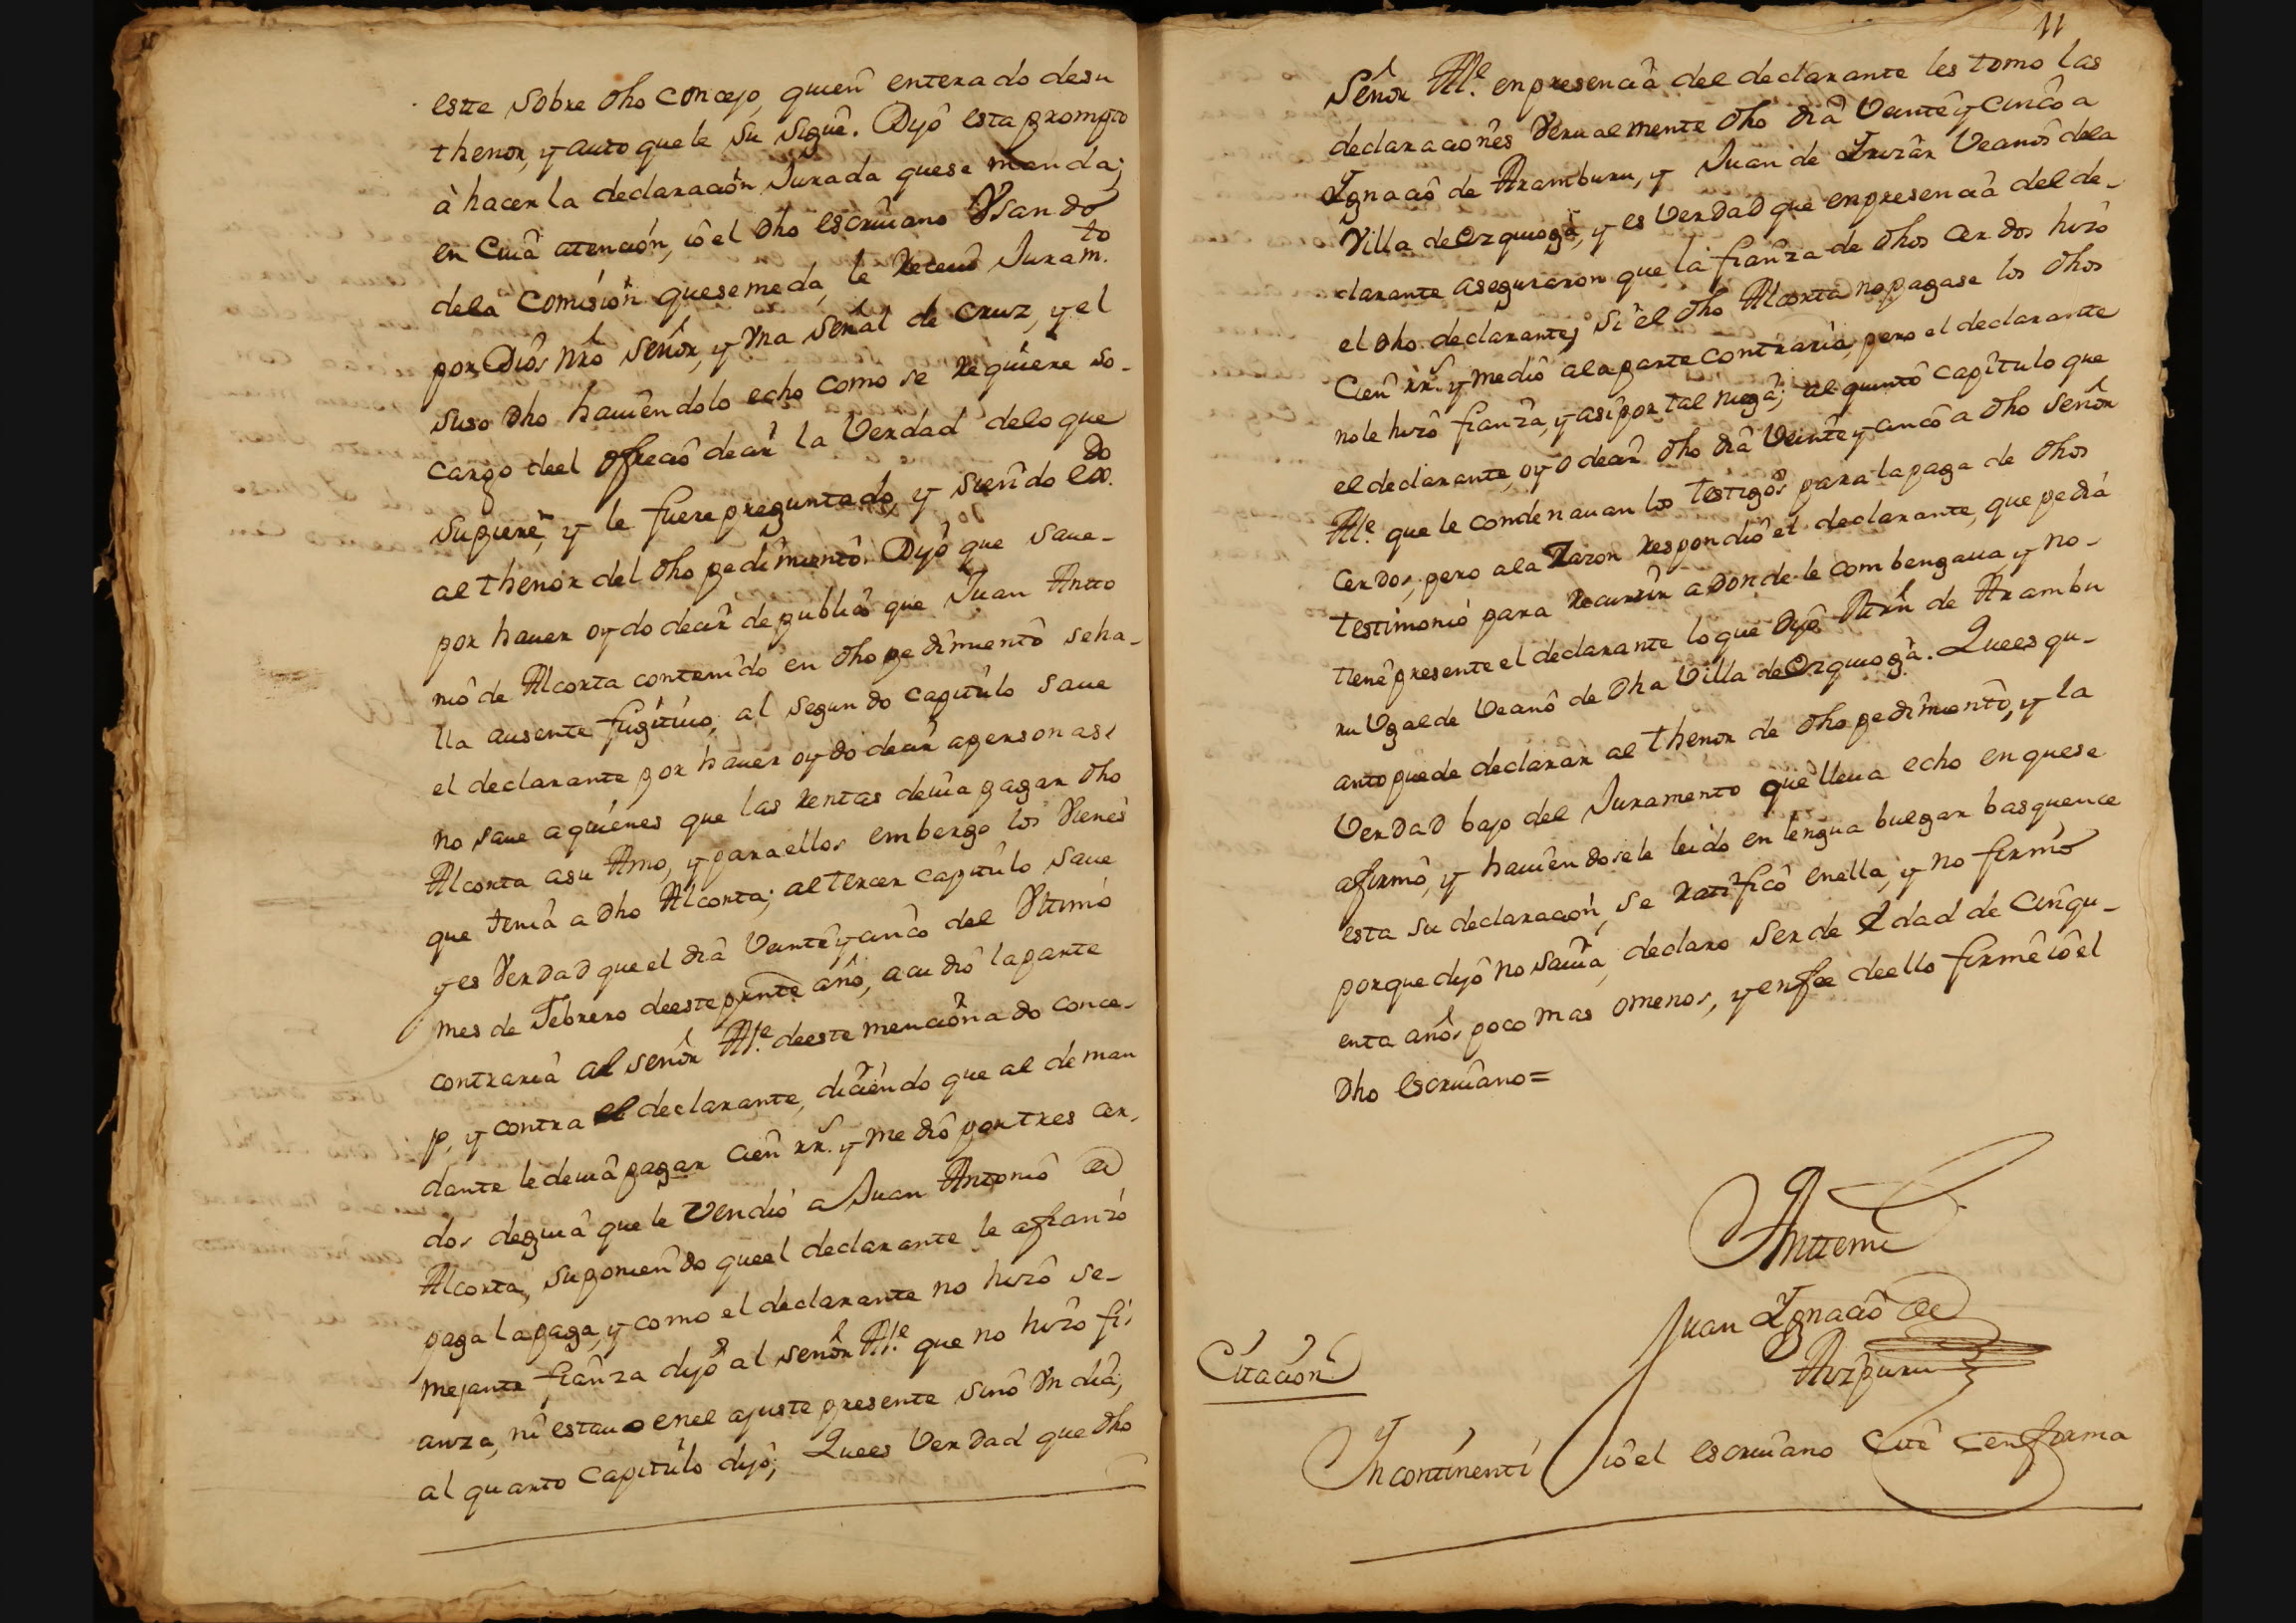 este sobre dho concejo, quien enterado desu
thenor, y auto que le su sigue. Dijo esta prompto
à hacer la declaracion Jurada quese manda;
en Cuia atencion, io el dho escriuano Vsando
dela Comision quese me da, le Receui Juramto.
por Dios nro señor, y Vna señal de Cruz, y el
suso dho hauiendolo echo como se Requiere so-
cargo deel ofrecio decir la Verdad delo que
supiere, y le fuere preguntado, y siendo exdo.
al thenor del dho pedimiento. Dijo que saue-
por hauer oydo decir de publico que Juan Anto
nio de Alcorta contenido en dho pedimiento seha-
lla ausente fugitiuo; al segundo capitulo saue
el declarante por hauer oydo decir apersonas i
no saue aquienes que las Rentas deuia pagar dho
Alcorta asu Amo, y para ellos embergo los Vienes
que tenia a dho Alcorta; al tercer capitulo saue
y es Verdad que el dia Veinte y cinco del Vltimo
mes de Febrero deeste prnte año, acudio la parte
contraria al señor Ale. deeste mencionado conce-
jo, y contra el declarante, diciendo que al deman
dante le deuia pagar cien rrs. y medio por tres cer-
dos deguia que le Vendio a Juan Antonio de
Alcorta, suponiendo que el declarante le afianzo
paga la paga, y como el declarante no hizo se-
mejante fianza dijo al señor Ale. que no hizo fi-
anza, ni estauo en el ajuste presente sino Vn dia;
al quarto Capitulo dijo; Quees Verdad que dho
11
Señor Ale. en presencia del declarante les tomo las
declaraciones Verualmente dho dia Veinte y cinco a
Ignacio de Aramburu, y Juan de Irizar Vecinos dela
Villa de Ezquioga, y es Verdad que en presencia del de-
clarante aseguraron que la fianza de dhos cerdos hizo
el dho declarante, si el dho Alcorta no pagase los dhos
Cien rrs. y medio ala parte contraria, pero el declarante
no le hizo fianza, y asi por tal niega; al quinto capitulo que
el declarante, oyo decir dho dia Veinte y cinco a dho señor
Ale. que le condenauan los testigos para la paga de dhos
cerdos, pero ala Razon Respondio el declarante, que pedia
testimonio para Recurrir adonde le combengaua, y no-
tiene presente el declarante lo que dijo Mrn de Arambu
ru Vgalde Vecino de dha Villa de Ezquioga. Quees qu-
anto puede declarar al thenor de dho pedimiento, y la
Verdad bajo del Juramento que lleua echo en quese
afirmo, y hauiendosele leido en lengua bulgar basquence
esta su declaracion, se ratifico enella, y no firmo
porque dijo no sauia, declaro ser de Edad de Cinqu-
enta años poco mas omenos, y enfee deello firme io el
dho escriuano =
Anttemi
Juan Ignacio de
Aizpuru
Citacion
Incontinenti io el escriuano Cite en forma